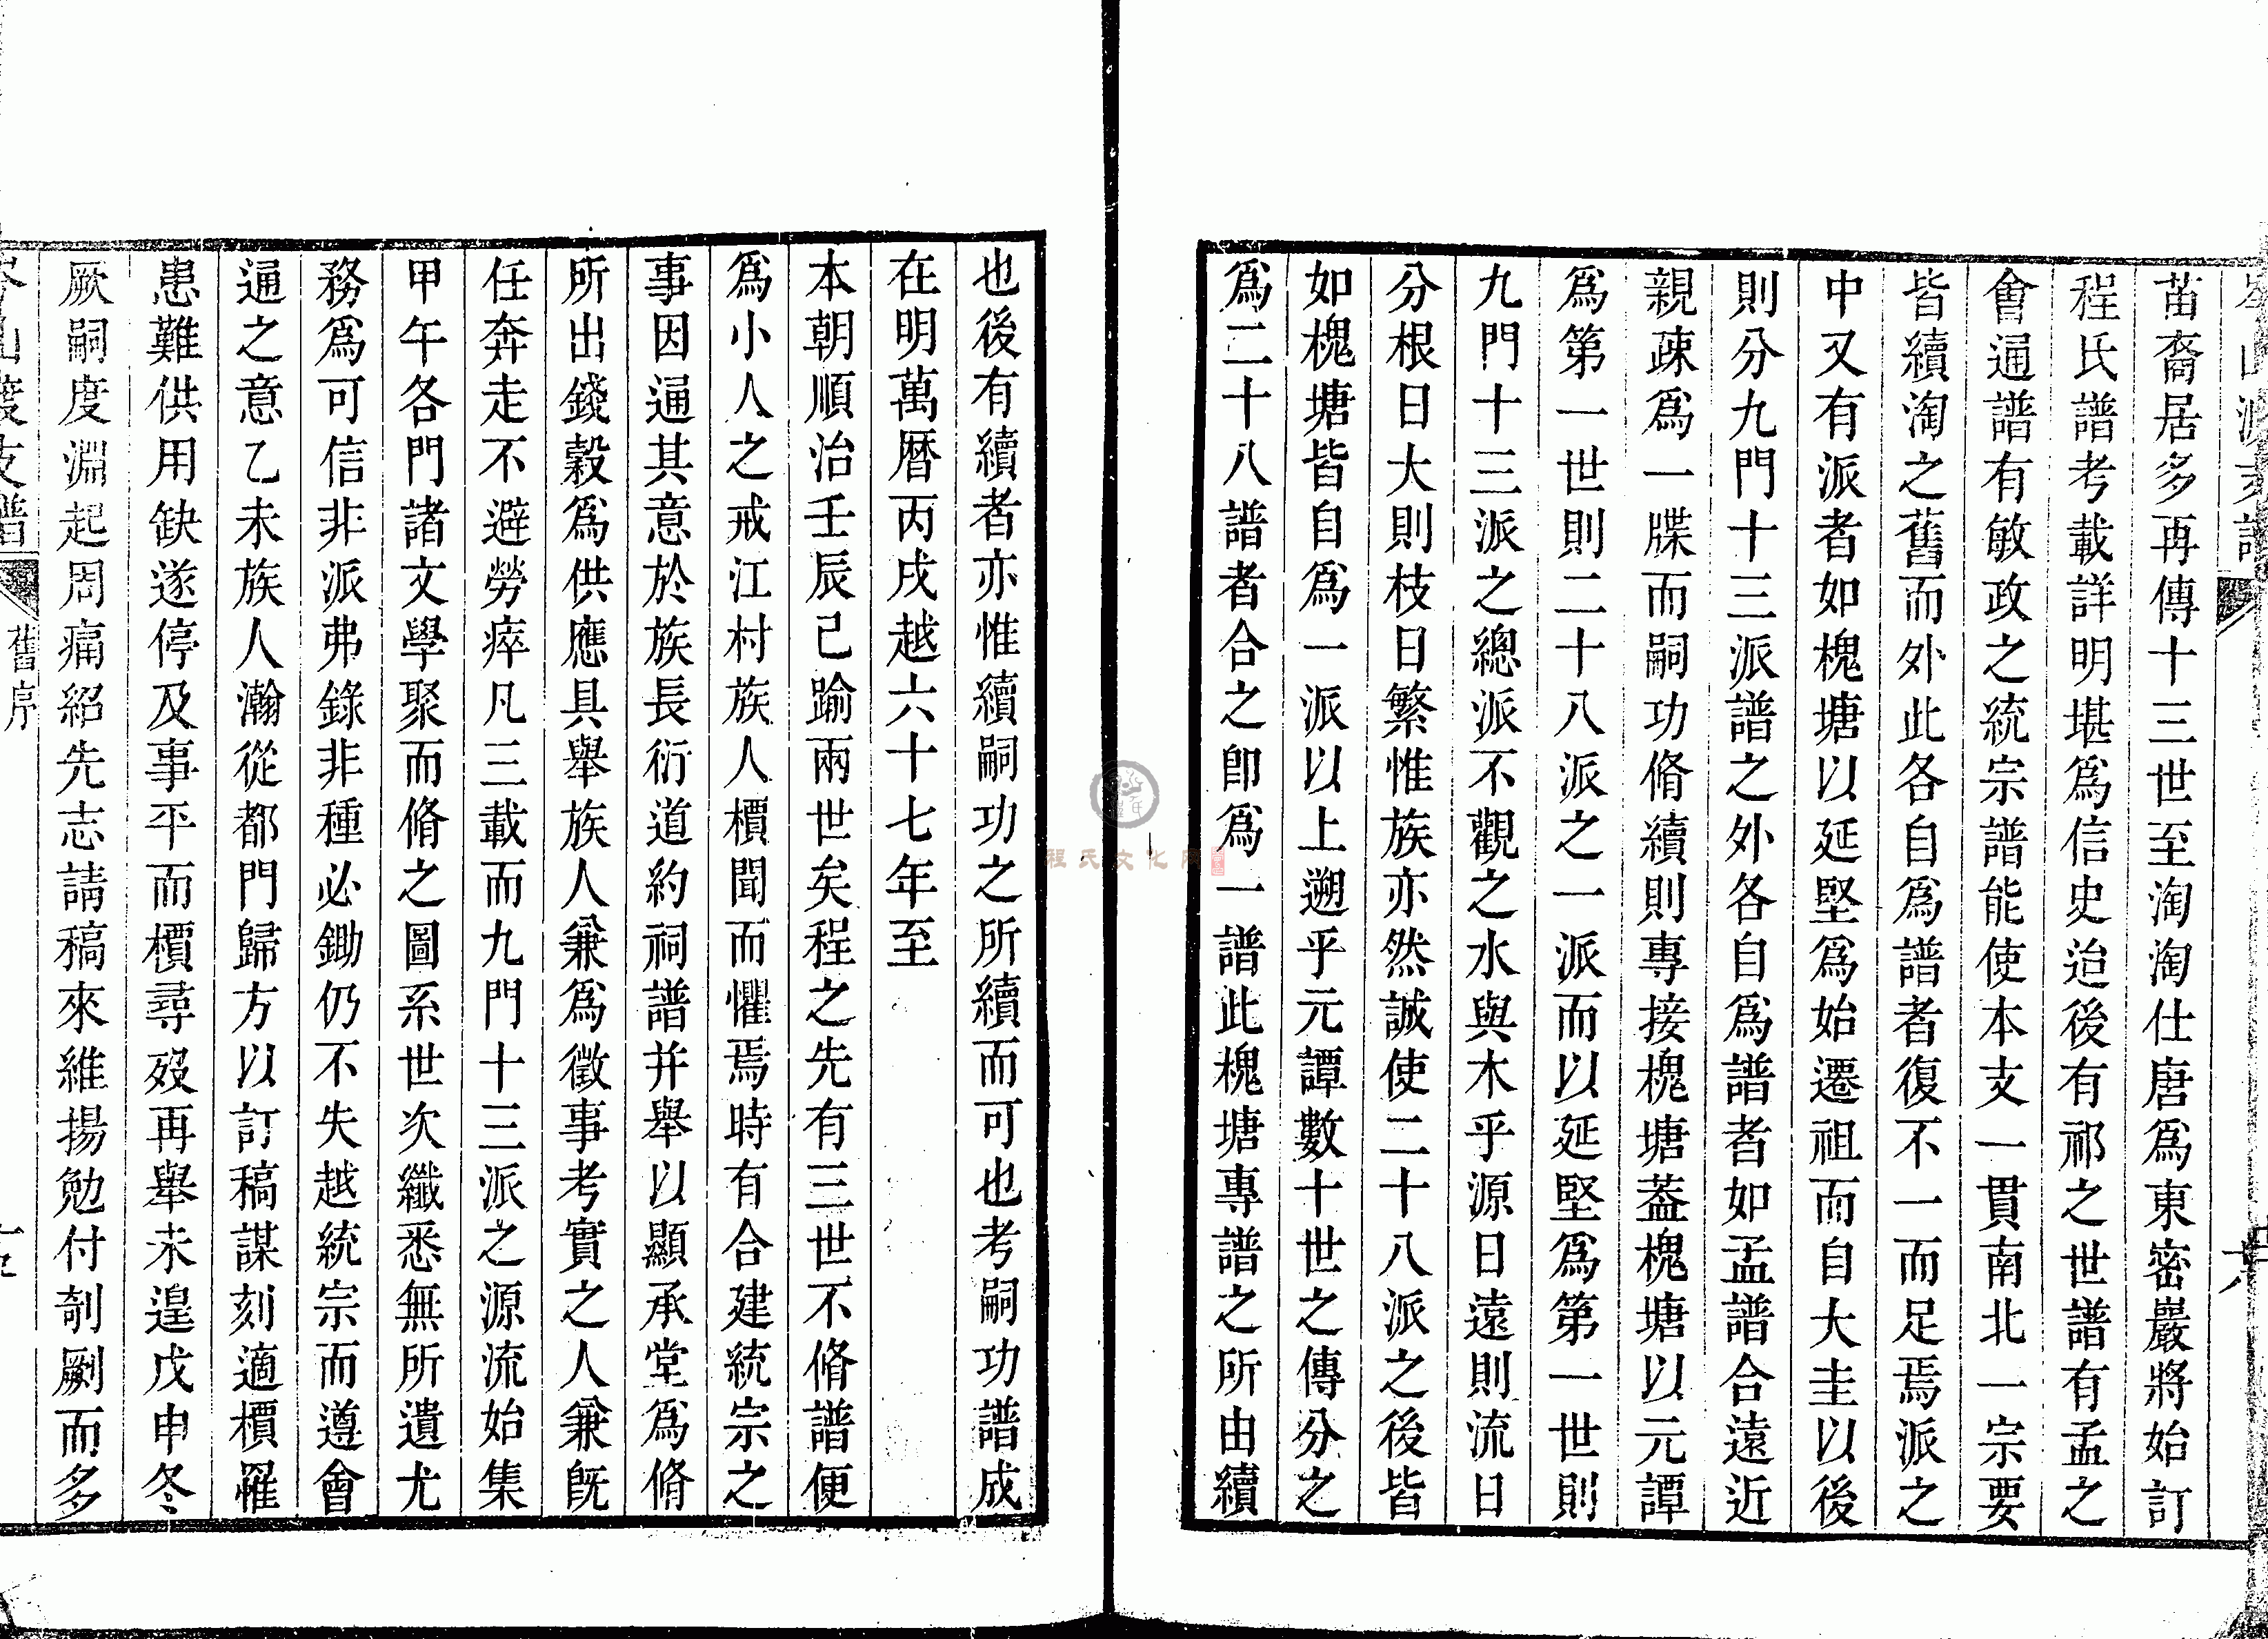 苗裔居多再傳十三世至淘淘仕唐爲東密巖將始訂
程氏譜考載詳明堪爲信史迨後有祁之世譜有孟之
會通譜有敏政之統宗譜能使本支一貫南北一宗要
皆續淘之舊而外此各自爲譜者復不一而足焉派之
中又有派者如槐塘以延堅爲始遷祖而自大圭以後
則分九門十三派譜之外各自爲譜者如孟譜合遠近
親疎爲一牒而嗣功脩續則專接槐塘葢槐塘以元譚
爲第一世則二十八派之一派而以延堅爲第一世則
九門十三派之總派不觀之水與木乎源日遠則流日
分根日大則枝日繁惟族亦然誠使二十八派之後皆
如槐塘皆自爲一派以上遡乎元譚數十世之傳分之
爲二十八譜者合之卽爲一譜此槐塘專譜之所由續
也後有續者亦惟續嗣功之所續而可也考嗣功譜成
在明萬曆丙戌越六十七年至
本朝順治壬辰已踰兩世矣程之先有三世不脩譜便
爲小人之戒江村族人檟聞而懼焉時有合建統宗之
事因通其意於族長衍道約祠譜并舉以顯承堂爲脩
所出錢穀爲供應具舉族人兼爲徵事考實之人兼旣
任奔走不避勞瘁凡三載而九門十三派之源流始集
甲午各門諸文學聚而脩之圖系世次纖悉無所遺尤
務爲可信非派弗錄非種必鋤仍不失越統宗而遵會
通之意乙未族人瀚從都門歸方以訂稿謀刻適檟罹
患難供用缺遂停及事平而檟尋歿再舉未遑戊申冬
厥嗣度淵起周痛紹先志請稿來維揚勉付剞劂而多
舊序